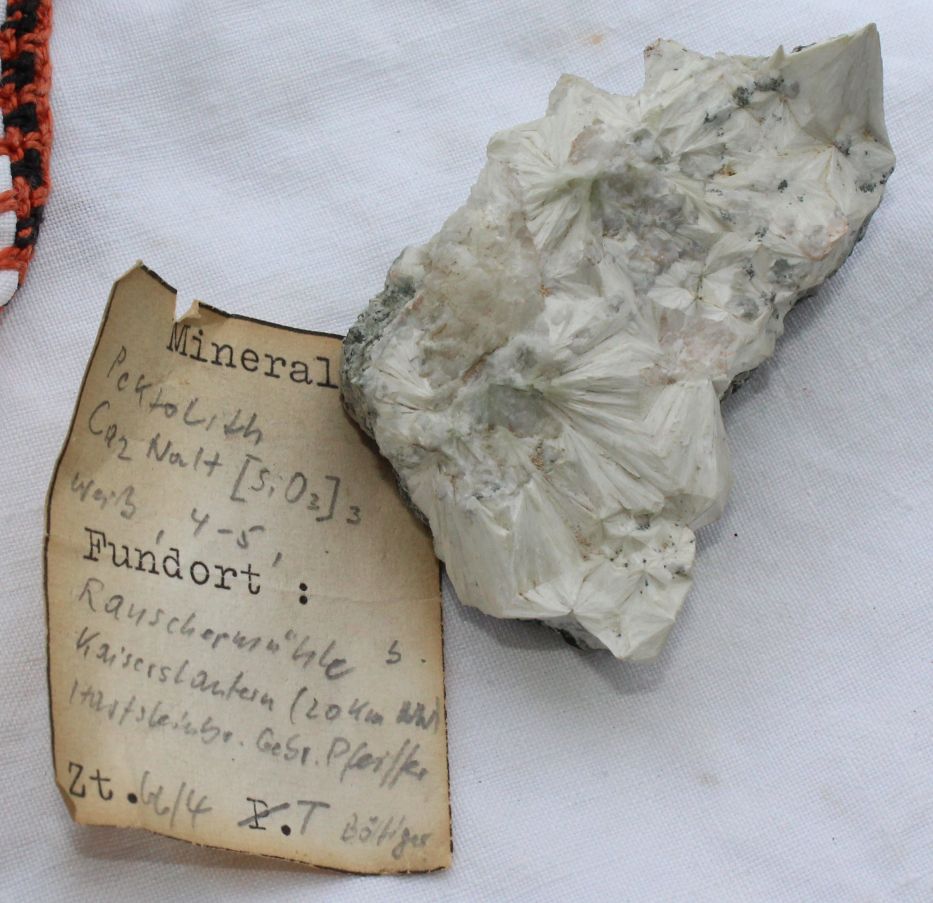 Mineral
Pektolith
Ca2 NaH [SiO3]3
weiß, 4-5,
Fundort :
Rauschermühle b.
Kaiserslautern (20 km
Hartsteinbr. Gebr. Pfeiffer
Zt. T Böttger